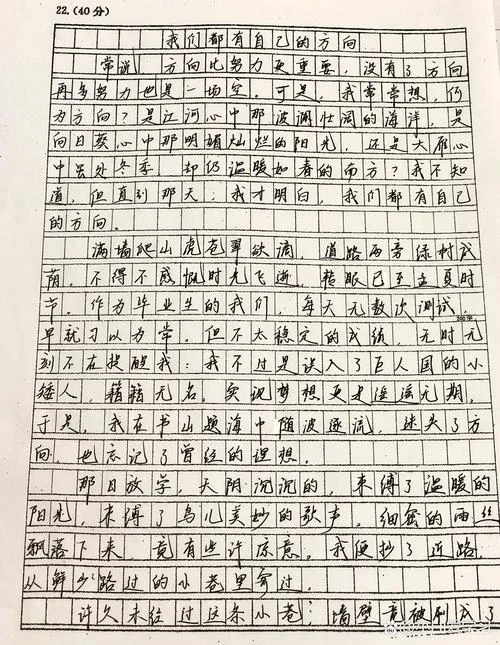 22.(40分)
我们都有自己的方向
常说 方向比努力更重要，没有了方向
再多努力也是一场空。可是，我常常想，何
为方向？是江河心中那波澜壮阔的海洋，是
向日葵心中那明媚灿烂的阳光，还是大雁心
中虽处冬季，却仍温暖如春的南方？我不知
道，但直到那天，我才明白，我们都有自己
的方向。
满墙爬山虎苍翠欲滴，道路两旁绿树成
荫，不得不感慨时光飞逝，转眼已至立夏时
节。作为毕业生的我们，每天无数次测试，
早就习以为常，但不太稳定的成绩，无时无
刻不在提醒我：我不过是误入了巨人国的小
矮人，籍籍无名。实现梦想更是遥遥无期，
于是，我在书山题海中随波逐流，迷失了方
向，也忘记了曾经的理想。
那日放学，天阴沉沉的，束缚了温暖的
阳光，束缚了鸟儿美妙的歌声。细密的雨丝
飘落下来，竟有些许凉意。我便抄了近路，
从鲜少路过的小巷里穿过。
许久未经过这条小巷，墙壁竟被刷成了